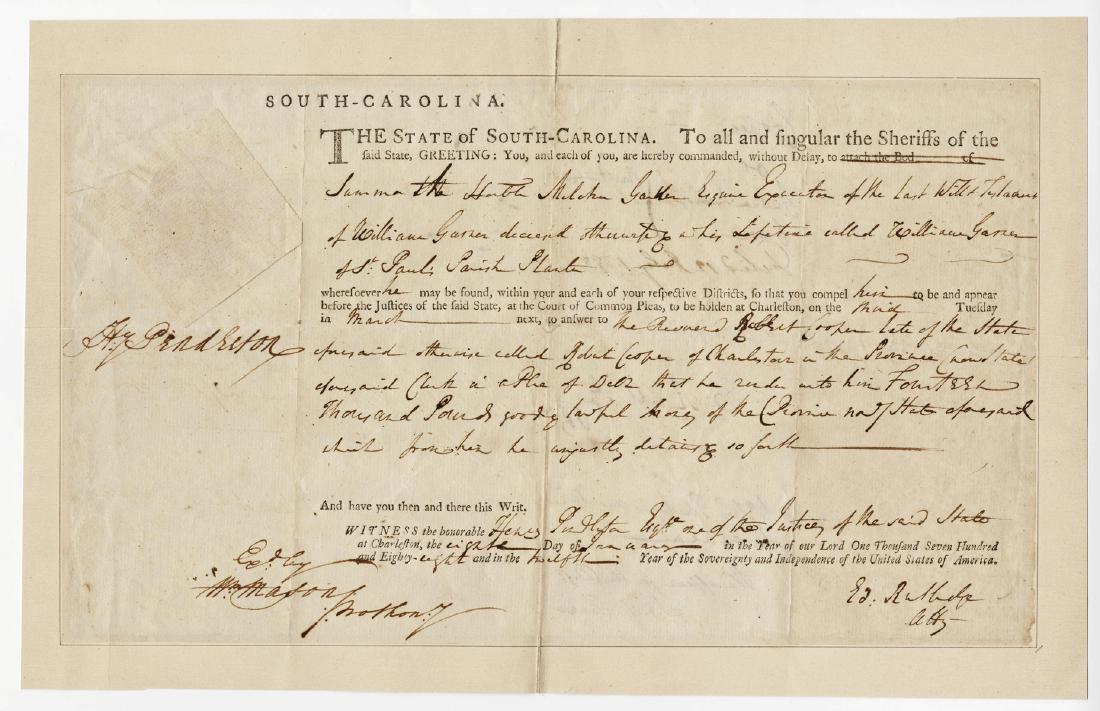 SOUTH-CAROLINA.
THE STATE of SOUTH-CAROLINA. To all and singular the Sheriffs of the
said State, GREETING: You, and each of you, are hereby commanded, without Delay, to attach the Bod of
Summon the Honble Esquire Executor of the Last Will & Testament
of William Garner deceasd otherwise in his Lifetime called William Garner
of St. Pauls Parish Planter
wheresoever he may be found, within your and each of your respective Districts, so that you compel him to be and appear
before the Justices of the said State, at the Court of Common Pleas, to be holden at Charleston, on the third Tuesday
in March next, to answer to the Reverend Robert Cooper late of the State
aforesaid otherwise called Robert Cooper of Charlestown in the Province (now State)
aforesaid Clerk in a Plea of Debt that he render unto him Fourteen
Thousand Pounds good & lawful Money of the (Province now) State aforesaid
which from him he unjustly detains & so forth
And have you then and there this Writ.
WITNESS the honorable Henry Pendleton Esqr. one of the Justices of the said State
at Charleston, the eighth Day of January in the Year of our Lord One Thousand Seven Hundred
and Eighty-eight and in the twelfth Year of the Sovereignty and Independence of the United States of America.
Hy. Pendleton
Exd. by
Wm Mason
Prothony
Ed. Rutledge
Atty